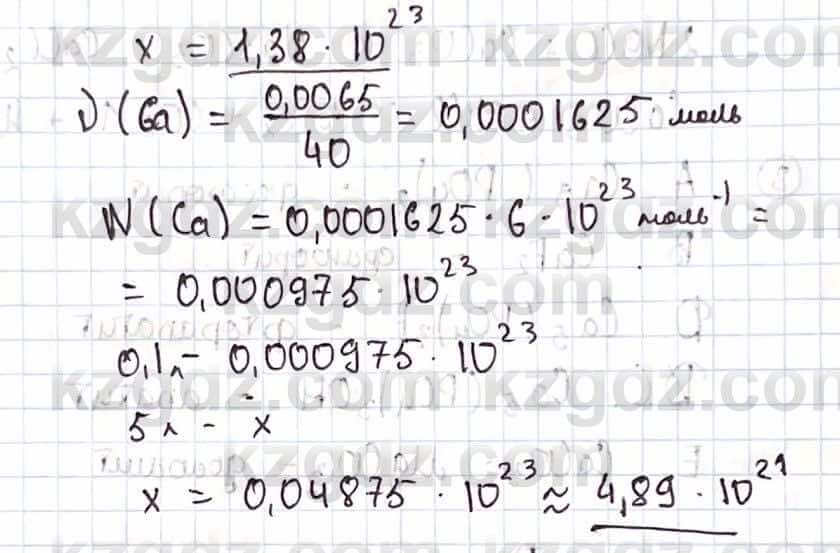 x = 1,38 · 10²³
ν (Ca) = 0,0065 / 40 = 0,0001625 моль
N (Ca) = 0,0001625 · 6 · 10²³ моль⁻¹ =
= 0,000975 · 10²³
0,1л - 0,000975 · 10²³
5л - x
x = 0,04875 · 10²³ ≈ 4,89 · 10²¹